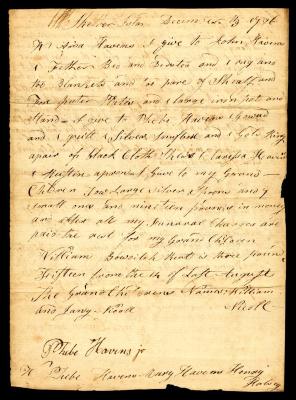 Shelter Island December 1796
Havens I give to John Havens
1 Fether Bed and Bedsted and 1 rug and
too Blankets and too pare of Sheats and
two puter Plates and 1 large iron pot and
Stand I give to Phebe Havens 1 Gownd
and 1 quilt 1 Silver and 1 Gold Ring
apair of black Cloth Havens
1 Muslin apron I Gave to my Grand
Children Tow Large Silver Spoons and
small ones and nineteen pounds in money
an after all my Funaral Charges are
paid the rest for my Grand Children
William Bowditch Rent is three pound
fifteen from the 14 of Last August
The Grand Childrens Names William
and Nicoll
Nicoll
Phebe Havens jr
Phebe Havens Mary Havens Henry
Halsey